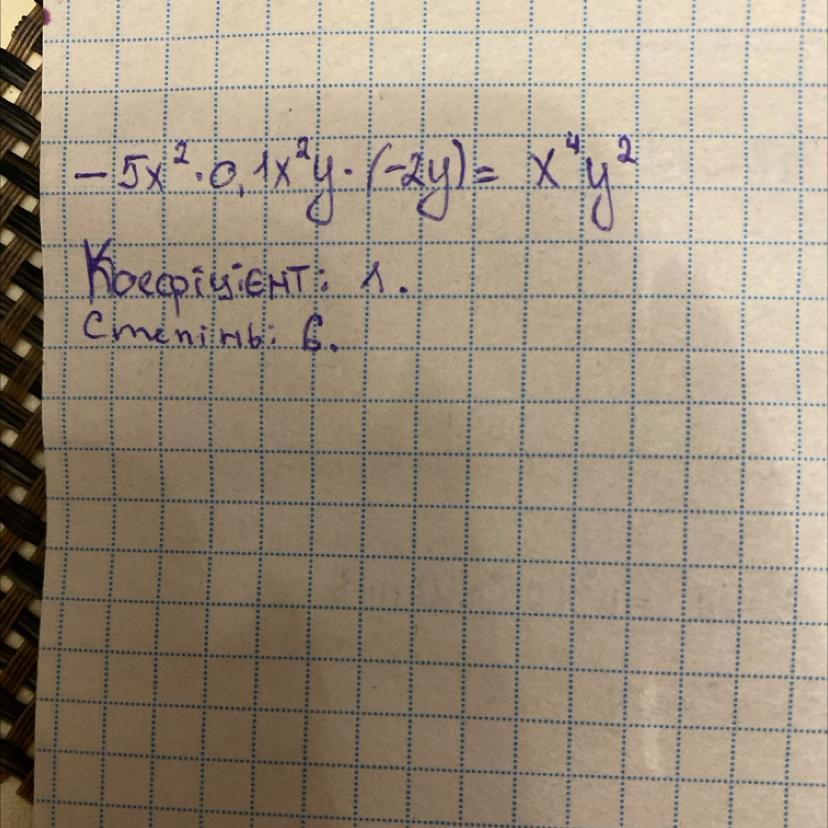 - 5x² · 0,1x²y · (-2y) = x⁴y²
Коефіцієнт: 1.
Степінь: 6.